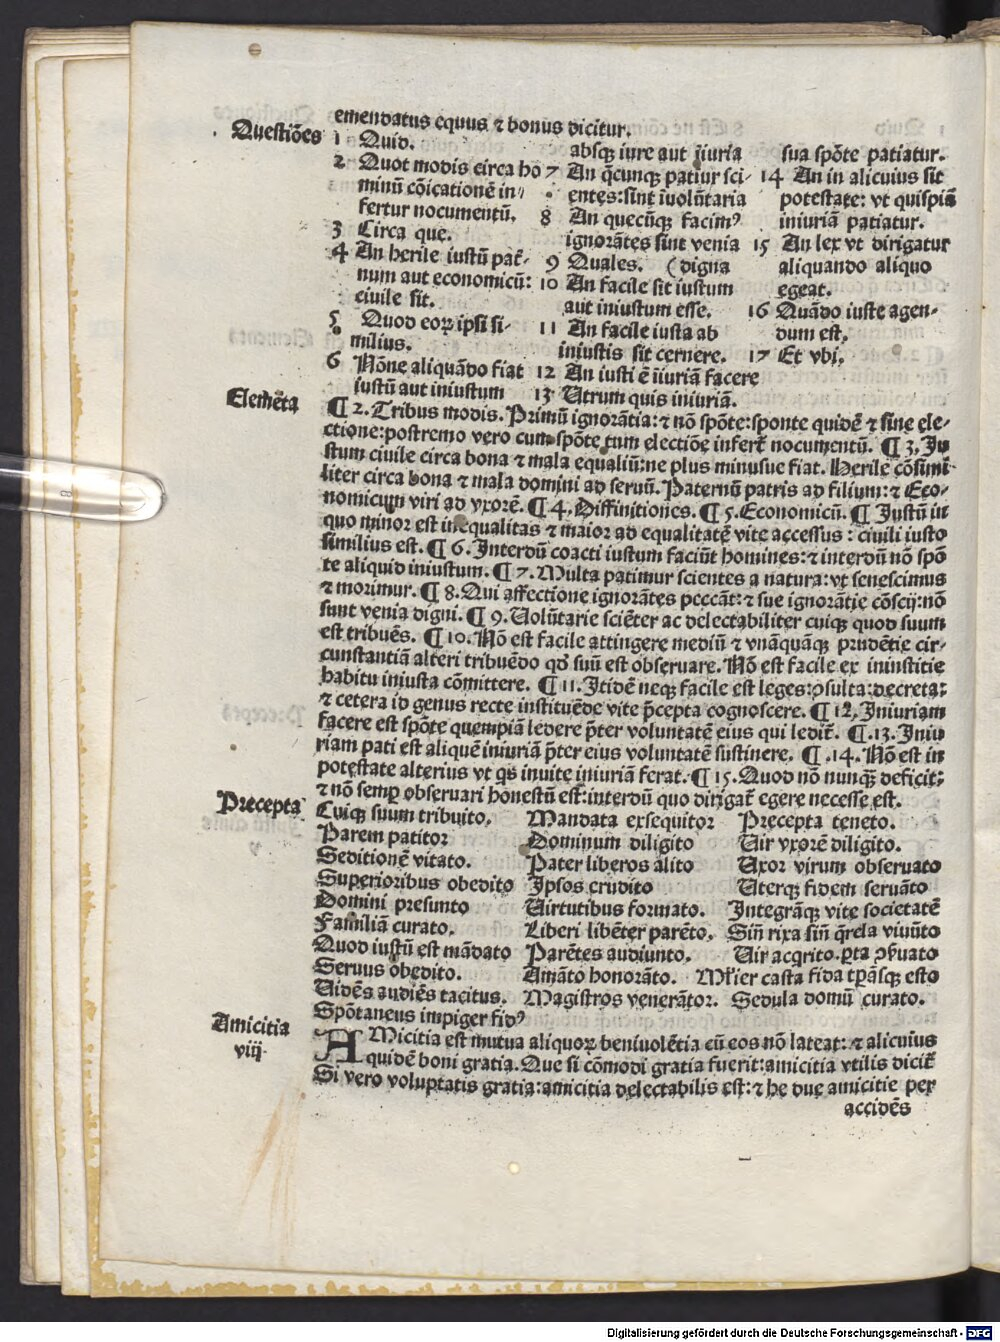 emendatus equus ⁊ bonus dicitur.
Questiões
1 Quid.
2 Quot modis circa ho
minū cōicationē in⸗
fertur nocumentū.
3 Circa que.
4 An herile iustū pat̄⸗
num aut economicū:
ciuile sit.
5 Quod eoꝝ ipsi si⸗
milius.
6 Nōne aliquādo fiat
iustū aut iniustum
absqꝫ iure aut ĩiuria
7 An q̄cunqꝫ patiur sci⸗
entes: sint iuolūtaria
8 An quecūqꝫ facimꝰ
ignorātes sint venia
9 Quales. (digna
10 An facile sit iustum
aut iniustum esse.
11 An facile iusta ab
iniustis sit cernere.
12 An iusti ē iiuriā facere
13 Utrum quis iniuriā.
sua spōte patiatur.
14 An in alicuius sit
potestate: vt quispiā
iniuriā patiatur.
15 An lex vt dirigatur
aliquando aliquo
egeat.
16 Quādo iuste agen⸗
dum est.
17 Et vbi.
Elemēta
¶ 2. Tribus modis. Primū ignorātia: ⁊ nō spōte: sponte quidē ⁊ sine ele⸗
ctione: postremo vero cum spōte tum electiōe infert̄ nocumentū. ¶ 3. Iu
stum ciuile circa bona ⁊ mala equaliū: ne plus minusue fiat. Herile cōsimi
liter circa bona ⁊ mala domini ad seruū. Paternū patris ad filium: ⁊ Eco⸗
nomicum viri ad vxorē. ¶ 4. Diffinitiones. ¶ 5. Economicū. ¶ Iustū in
quo minor est inequalitas ⁊ maior ad equalitatē vite accessus: ciuili iusto
similius est. ¶ 6. Interdū coacti iustum faciūt homines: ⁊ interdū nō spō
te aliquid iniustum. ¶ 7. Multa patimur scientes a natura: vt senescimus
⁊ morimur. ¶ 8. Qui affectione ignorātes peccāt: ⁊ sue ignorātie cōscij: nō
sunt venia digni. ¶ 9. Uolūtarie sciēter ac delectabiliter cuiqꝫ quod suum
est tribuēs. ¶ 10. Nō est facile attingere mediū ⁊ vnāquāqꝫ prudētie cir⸗
cunstantiā alteri tribuēdo qd̄ suū est obseruare. Nō est facile ex ininstitie
habitu iniusta cōmittere. ¶ 11. Itidē neqꝫ facile est leges: ꝯsulta: decreta:
⁊ cetera id genus recte instituēde vite p̄cepta cognoscere. ¶ 12. Iniuriam
facere est spōte quempiā ledere p̄ter voluntatē eius qui ledit̄. ¶ .13. Iniu
riam pati est aliquē iniuriā p̄ter eius voluntatē sustinere. ¶ .14. Nō est in
potestate alterius vt qs inuite iniuriā ferat. ¶ 15. Quod nō nunqꝫ deficit:
⁊ nō semp̱ obseruari honestū est: interdū quo dirigat̄ egere necesse est.
Precepta
Cuiqꝫ suum tribuito.
Parem patitor
Seditionē vitato.
Superioribus obedito
Domini presunto
Familiā curato.
Quod iustū est mādato
Seruus obedito.
Uidēs audiēs tacitus.
Spōtaneus impiger fidꝰ
Mandata exsequitor
Dominum diligito
Pater liberos alito
Ipsos erudito
Uirtutibus formato.
Liberi libēter parēto.
Parētes audiunto.
Amāto honorāto.
Magistros venerātor.
Precepta teneto.
Uir vxorē diligito.
Uxor virum obseruato
Uterqꝫ fidem seruāto
Integrāqꝫ vite societatē
Sin̄ rixa sin̄ q̄rela viuūto
Uir acq̄rito. ꝑta ꝯẜuato
Ml̄ier casta fida tꝑāsqꝫ esto
Sedula domū curato.
Amicitia
viij
AMicitia est mutua aliquoꝝ beniuolētia cū eos nō lateat: ⁊ alicuius
quidē boni gratia. Que si cōmodi gratia fuerit: amicitia vtilis dicit̄
Si vero voluptatis gratia: amicitia delectabilis est: ⁊ he due amicitie per
accidēs
Digitalisierung gefördert durch die Deutsche Forschungsgemeinschaft - DFG